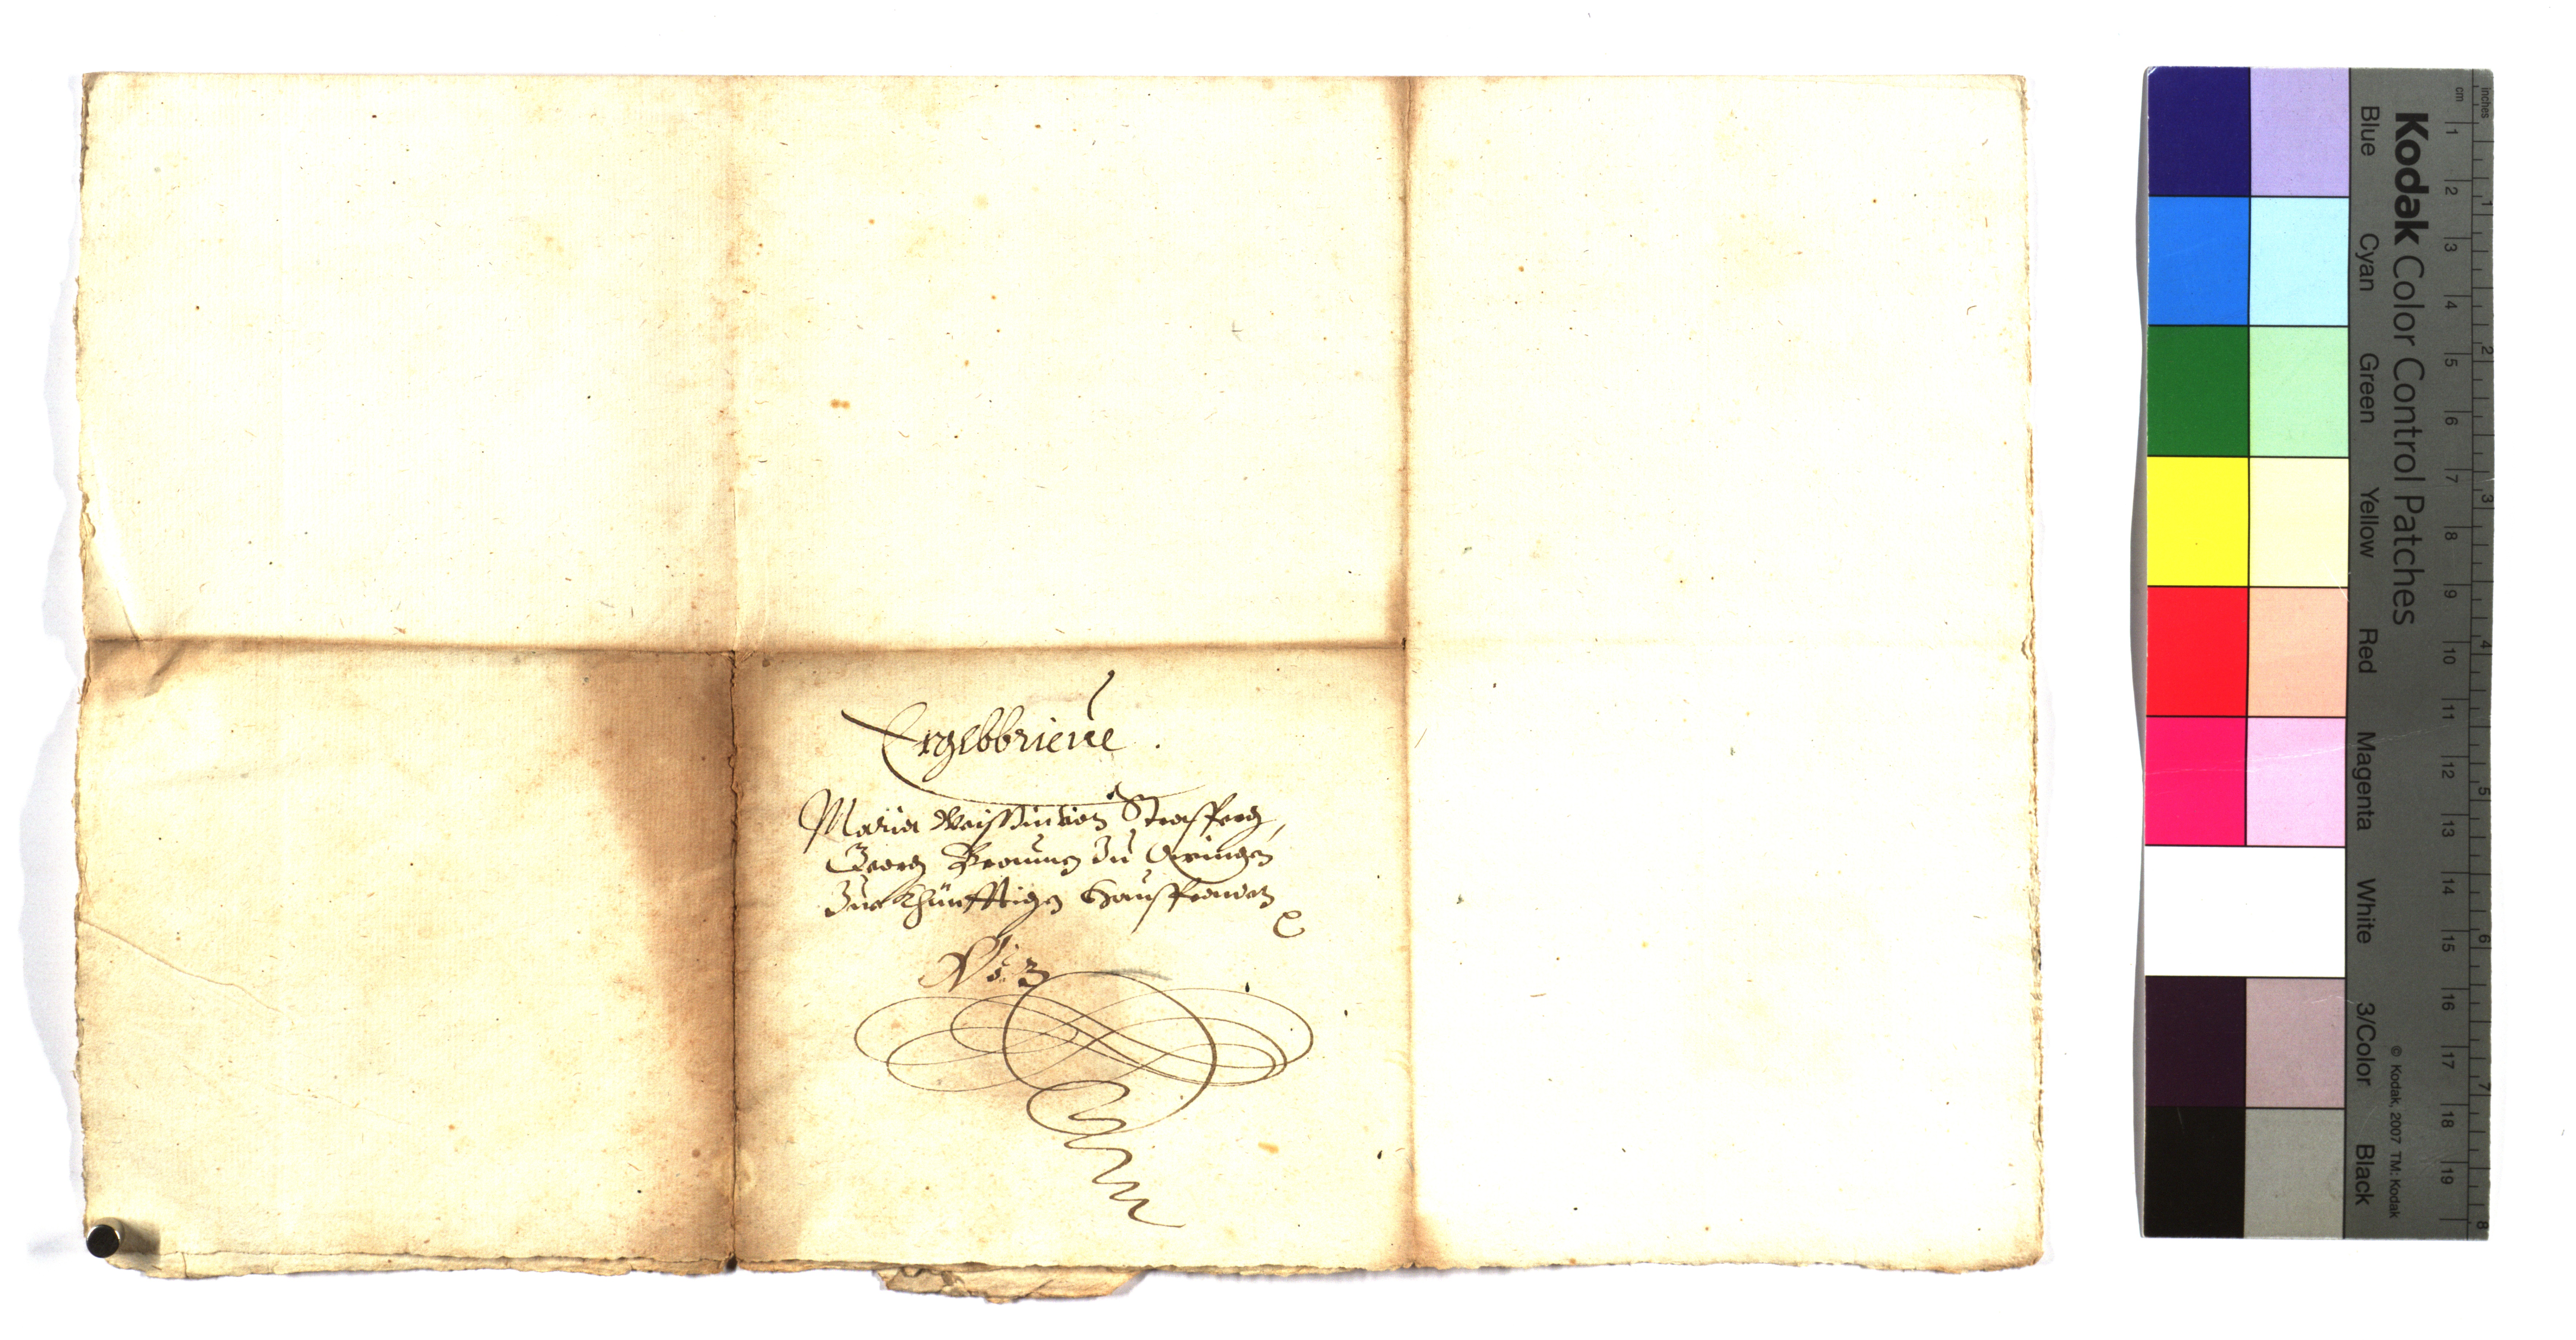 Ergebbrieve.
Maria Weissin von Strasserg,
Georg Braunn zu Owingen
Zur Khünfftigen Haussfrauen
No. 3
Kodak Color Control Patches
Blue Cyan Green Yellow Red Magenta White 3/Color Black
© Kodak, 2007 TM: Kodak
cm 1 2 3 4 5 6 7 8 9 10 11 12 13 14 15 16 17 18 19
inches 1 2 3 4 5 6 7 8